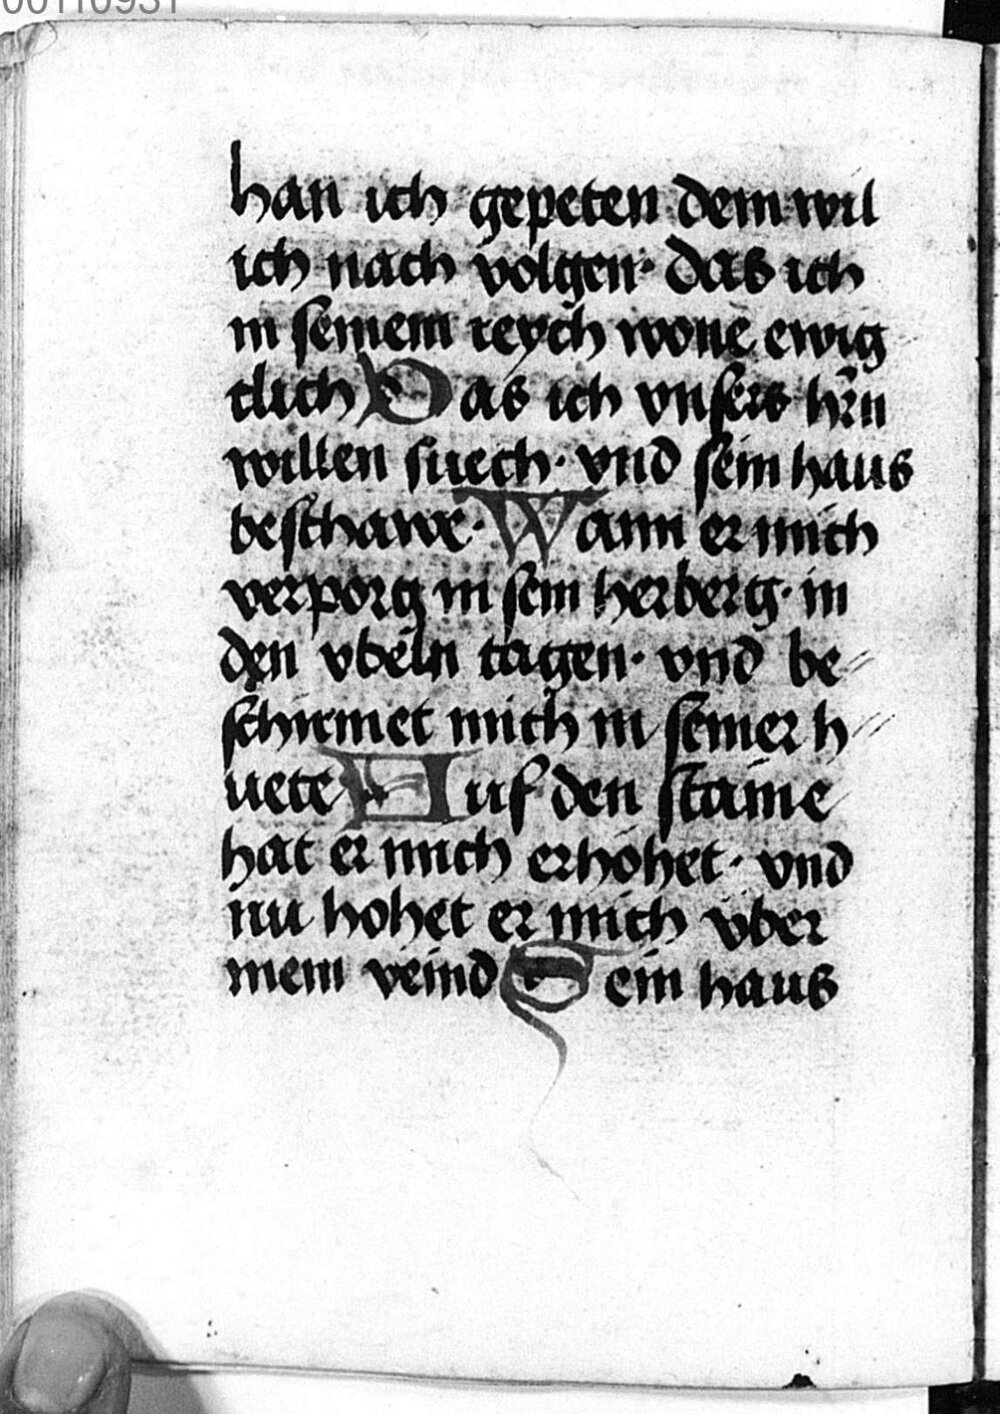 00110931
han ich gepeten dem wil
ich nach volgen· das ich
in seinem reych wone ewig
clich Das ich vnsers hr̄n
willen suech· vnd sein haus
beschawe· Wann er mich
verporg in sein herberg· in
den vbeln tagen· vnd be⸗
schirmet mich in seiner h⸗
uete Auf den staine
hat er mich erhöhet· vnd
nu hohet er mich vber
mein veind Sein haus